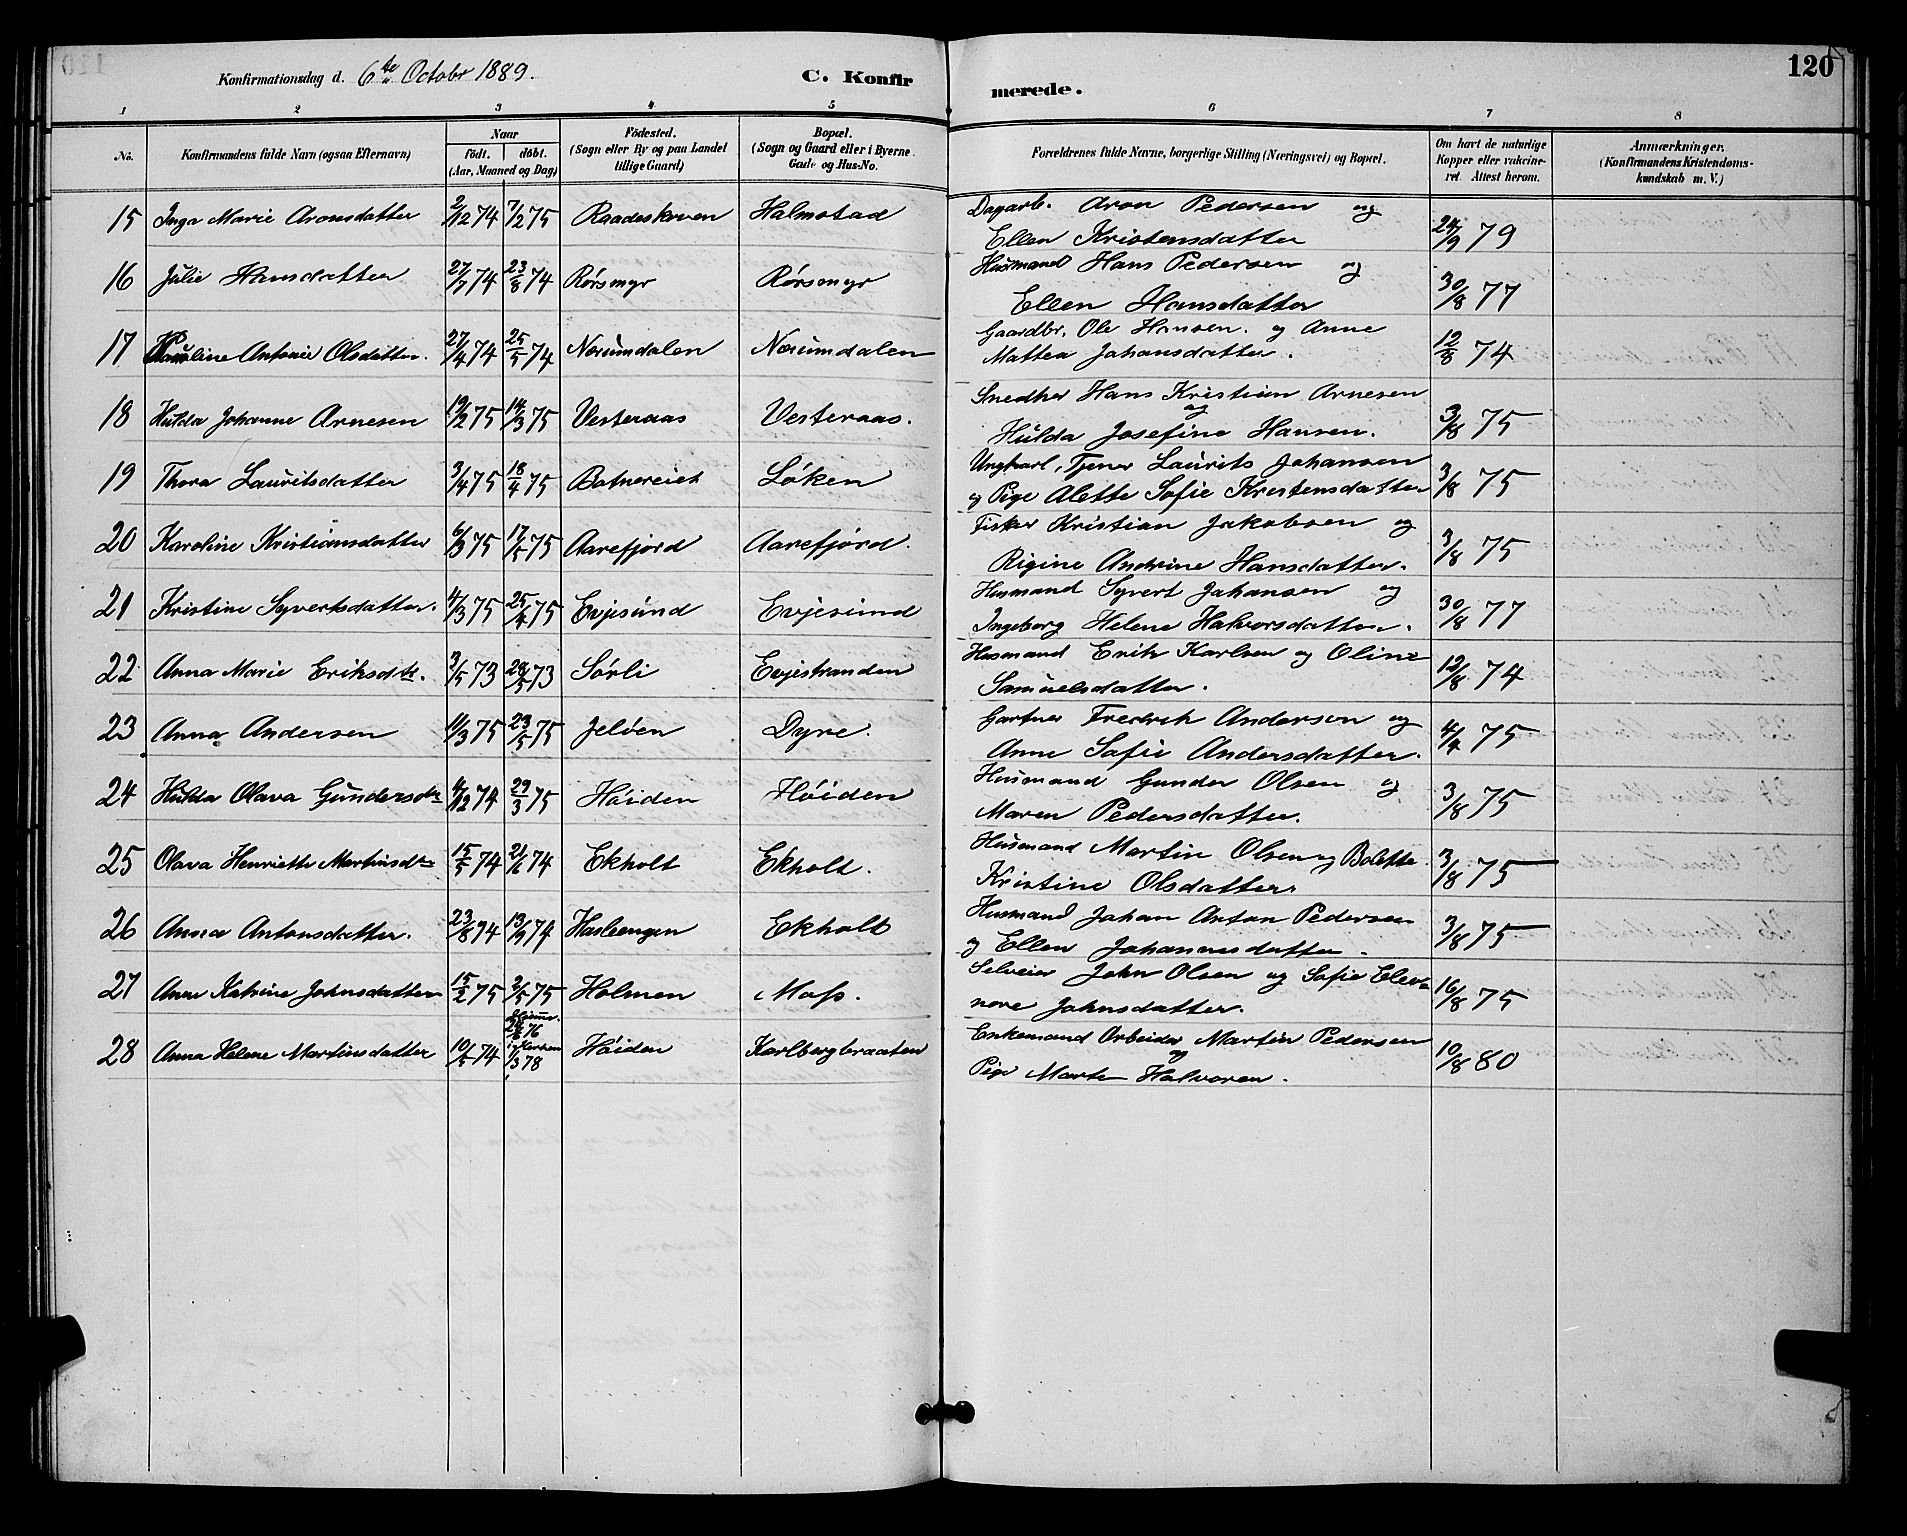 Konfirmationsdag d. 6te Octobr 1889.
C. Konfirmerede.
120
1 2 3 4 5 6 7 8
No. Konfirmandens fulde Navn (ogsaa Efternavn) Naar født. døbt. (Aar, Maaned og Dag) Fødested. (Sogn eller By og paa Landet tillige Gaard) Bopæl. (Sogn og Gaard eller i Byerne Gade og Hus-No. Forældrenes fulde Navne, borgerlige Stilling (Næringsvei) og Bopæl. Om havt de naturlige Kopper eller vakcineret. Attest herom. Anmærkninger. (Konfirmandens Kristendomskundskab m. V.)
15 Inga Marie Aronsdatter 2/12 74 7/2 75 Raadeskroven Halmstad Dagarb. Aron Pedersen og
Ellen Kristensdatter 24/9 79
16 Julie Hansdatter 27/7 74 23/8 74 Rørsmyr Rørsmyr Husmand Hans Pedersen og
Ellen Hansdatter 30/8 77
17 Pauline Antonie Olsdatter. 27/4 74 25/5 74 Norumdalen Norumdalen Gaardbr. Ole Hansen. og Anne
Mattea Johansdatter. 12/8 74
18 Hulda Johanne Arnesen 19/2 75 14/3 75 Vesteraas Vesteraas. Snedker Hans Kristian Arnesen
og
Hulda Josefine Hansen. 3/8 75
19 Thora Lauritsdatter 3/4 75 18/4 75 Botnereiet Løken Ungkarl, Tjener Laurits Johansen
og Pige Alette Sofie Kristensdatter 3/8 75
20 Karoline Kristiansdatter 6/3 75 17/5 75 Aarefjord Aarefjord. Fisker Kristian Jakobsen og
Rigine Andrine Hansdatter. 3/8 75
21 Kristine Syvertsdatter. 4/3 75 25/4 75 Evjesund Evjesund Husmand Syvert Johansen og
Ingeborg Helene Halvorsdatter. 30/8 77
22 Anna Marie Eriksdtr. 3/5 73 29/5 73 Sørli Evjestranden Husmand Erik Karlsen og Oline
Samuelsdatter. 12/8 74
23 Anna Andersen 11/3 75 23/5 75 Jeløen Dyre. Gartner Fredrik Andersen og
Anne Sofie Andersdatter. 4/4 75
24 Hulda Olava Gundersdtr 4/12 74 29/3 75 Høiden Høiden Husmand Gunder Olsen og
Maren Pedersdatter. 3/8 75
25 Olava Henriette Martinsdtr 15/5 74 21/6 74 Ekholt Ekholt. Husmand Martin Olsen og Bolette
Kristine Olsdatter. 3/8 75
26 Anna Antonsdatter. 23/8 74 13/9 74 Hasleengen Ekholt Husmand Johan Anton Pedersen
og Ellen Johannesdatter. 3/8 75
27 Anne Katrine Johnsdatter 15/2 75 2/5 75 Holmen Moss. Selveier John Olsen og Sofie Eleonore
Johnsdatter. 16/8 75
28 Anna Helene Martinsdatter 10/5 74 Hjemme. 24/6 76 i Kirken 1/3 78 Høiden Karlbergbraaten Enkemand Arbeider Martin Pedersen
og
Pige Marte Halvoren. 10/8 80